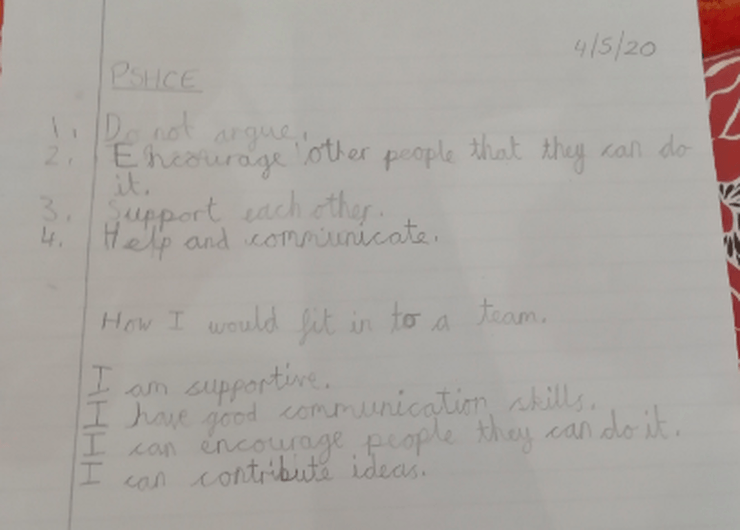 4/5/20
PSHCE
1. Do not argue.
2. Encourage other people that they can do
it.
3. Support each other.
4. Help and communicate.
How I would fit in to a team.
I am supportive.
I have good communication skills.
I can encourage people they can do it.
I can contribute ideas.